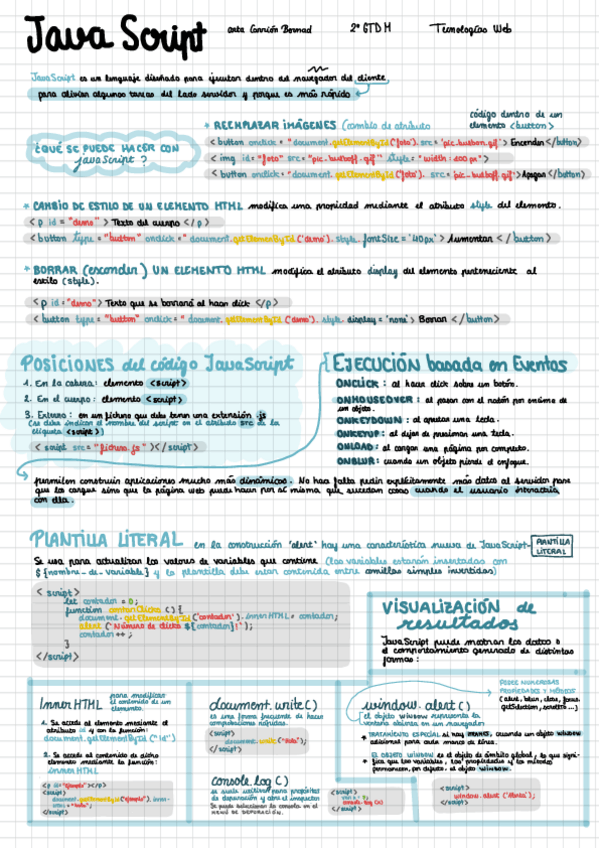 JavaScript
2º GTDM
Tecnologías Web
JavaScript es un lenguaje diseñado para ejecutar dentro del navegador del cliente
para aliviar algunas tareas del lado servidor y porque es más rápido
¿QUÉ SE PUEDE HACER CON
JavaScript?
* REEMPLAZAR IMÁGENES (cambio de atributo
código dentro de un
elemento <button>
<button onclick = "document.getElementById('foto').src='pic_bulbon.gif'"> Encender</button>
<img id="foto" src="pic_bulboff.gif" style="width:100px">
<button onclick="document.getElementById('foto').src='pic_bulboff.gif'"> Apagar</button>
* CAMBIO DE ESTILO DE UN ELEMENTO HTML modifica una propiedad mediante el atributo style del elemento.
<p id="demo"> Texto del cuerpo </p>
<button type="button" onclick="document.getElementById('demo').style.fontSize='40px'> Aumentar </button>
* BORRAR (esconder) UN ELEMENTO HTML modifica el atributo display del elemento perteneciente al
estilo (style).
<p id="demo"> Texto que se borrará al hacer click </p>
<button type="button" onclick="document.getElementById('demo').style.display='none'> Borrar </button>
POSICIONES del código JavaScript
1. En la cabecera: elemento <script>
2. En el cuerpo: elemento <script>
3. Externo: en un fichero que debe tener una extensión .js
(se debe indicar el nombre del script en el atributo src de la
etiqueta <script>)
<script src="fichero.js"></script>
EJECUCIÓN basada en Eventos
ONCLICK: al hacer click sobre un botón.
ONMOUSEOVER: al pasar con el ratón por encima de
un objeto.
ONKEYDOWN: al apretar una tecla.
ONKEYUP: al dejar de presionar una tecla.
ONLOAD: al cargar una página por completo.
ONBLUR: cuando un objeto pierde el enfoque.
permiten construir aplicaciones mucho más dinámicas. No hace falta pedir explícitamente más datos al servidor para
que los cargue sino que la página web puede hacer por sí misma que sucedan cosas cuando el usuario interactúa
con ella.
PLANTILLA LITERAL en la construcción 'alert' hay una característica nueva de JavaScript-
PLANTILLA
LITERAL
Se usa para actualizar los valores de variables que contiene (las variables estarán insertadas con
${nombre-de-variable} y la plantilla debe estar contenida entre comillas simples invertidas)
<script>
let contador = 0;
function contarClicks () {
document.getElementById('contador').innerHTML = contador;
alert (`Número de clicks ${contador}!`);
contador++;
}
</script>
VISUALIZACIÓN de
resultados
JavaScript puede mostrar los datos o
el comportamiento generado de distintas
formas:
InnerHTML
para modificar
el contenido de un
elemento.
1. Se accede al elemento mediante el
atributo id y con la función:
document.getElementById("id")
2. Se accede al contenido de dicho
elemento mediante la función:
innerHTML
<p id="ejemplo"></p>
<script>
document.getElementById("ejemplo").inner-
HTML = "hola";
</script>
document.write()
es una forma frecuente de hacer
comprobaciones rápidas.
<script>
document.write("hola");
</script>
console.log()
se suele utilizar para propósitos
de depuración y abre el inspector
Se puede seleccionar la consola en el
MENÚ DE DEPURACIÓN.
<script>
console.log(x)
</script>
window.alert()
el objeto WINDOW representa la
ventana abierta en un navegador
POSEE NUMEROSAS
PROPIEDADES Y MÉTODOS
(alert, blur, close, focus,
getSelection, scrollTo...)
* TRATAMIENTO ESPECIAL si hay IFRAMES, cuando un objeto WINDOW
adicional para cada marco de línea.
EL OBJETO WINDOW es el objeto de ámbito global, lo que signi-
fica que las variables, las propiedades y los métodos
pertenecen, por defecto, al objeto WINDOW.
<script>
window.alert('Alerta');
</script>